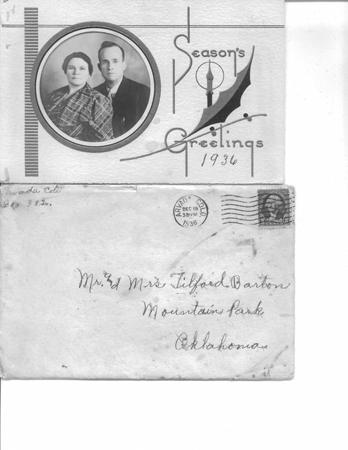 Season's
Greetings
1936
Arvada Colo
Box
ARVADA COLO.
DEC 18
1936
Mr. & Mrs Tilford Barton
Mountain Park
Oklahoma